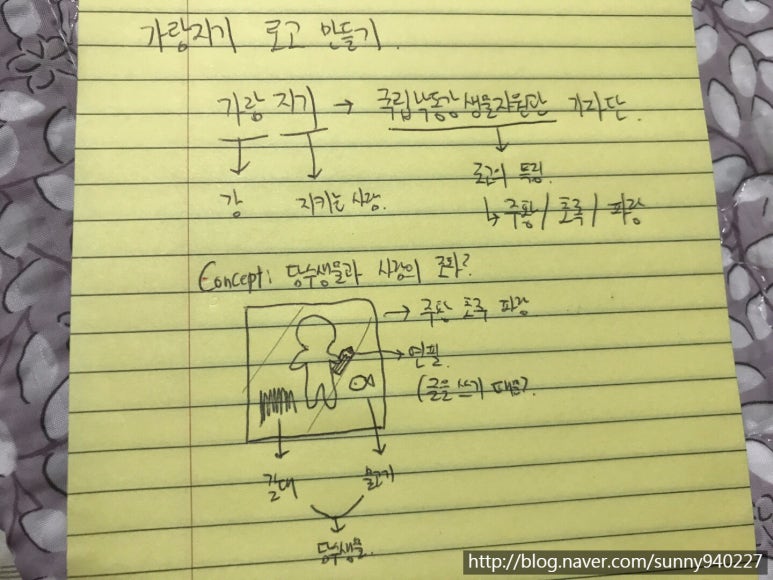 가랑지기 로고 만들기.
가랑 지기 → 국립낙동강생물자원관 기자단.
강 지키는 사람.
로고의 특징.
↳ 주황 / 초록 / 파랑
Concept: 담수생물과 사람의 조화?
→ 주황 초록 파랑
→ 연필.
(글을 쓰기 때문?)
갈대 물고기
담수생물.
http://blog.naver.com/sunny940227